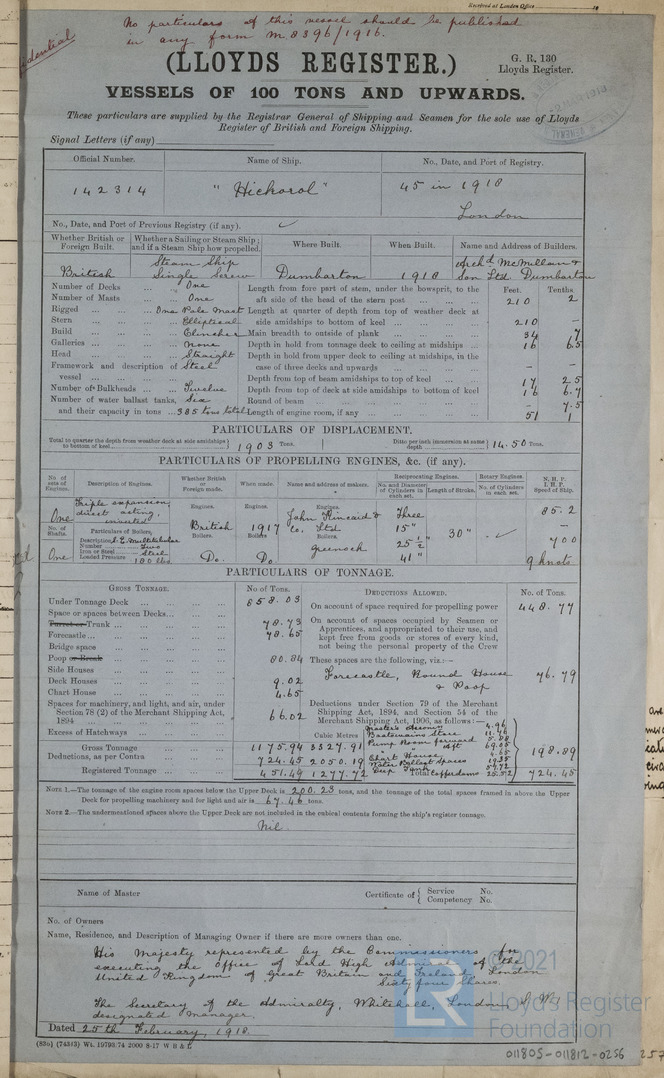 Received at London Office 19
No particulars of this vessel should be published
in any form M.8396/1916.
(LLOYDS REGISTER.)
G. R. 130
Lloyds Register.
VESSELS OF 100 TONS AND UPWARDS.
These particulars are supplied by the Registrar General of Shipping and Seamen for the sole use of Lloyds
Register of British and Foreign Shipping.
Signal Letters (if any)
Official Number. Name of Ship. No., Date, and Port of Registry.
142314 "Hickorol" 45 in 1918
London
No., Date, and Port of Previous Registry (if any). ✓
Whether British or Foreign Built. Whether a Sailing or Steam Ship; and if a Steam Ship how propelled. Where Built. When Built. Name and Address of Builders.
British Steam Ship Single Screw Dumbarton 1918 Archd McMillan & Son Ltd Dumbarton
Feet. Tenths.
Number of Decks One Length from fore part of stem, under the bowsprit, to the
Number of Masts One aft side of the head of the stern post 210 2
Rigged One Pole Mast Length at quarter of depth from top of weather deck at
Stern Elliptical side amidships to bottom of keel 210 —
Build Clincher Main breadth to outside of plank 34 7
Galleries None Depth in hold from tonnage deck to ceiling at midships 16 6.5
Head Straight Depth in hold from upper deck to ceiling at midships, in the
Framework and description of Steel case of three decks and upwards — —
vessel Depth from top of beam amidships to top of keel 17 25
Number of Bulkheads Twelve Depth from top of deck at side amidships to bottom of keel 16 6.7
Number of water ballast tanks, Six Round of beam — 7.5
and their capacity in tons 385 tons total Length of engine room, if any 51 1
PARTICULARS OF DISPLACEMENT.
Total to quarter the depth from weather deck at side amidships to bottom of keel 1903 Tons. Ditto per inch immersion at same depth 14.50 Tons.
PARTICULARS OF PROPELLING ENGINES, &c. (if any).
No. of sets of Engines. Description of Engines. Whether British or Foreign made. When made. Name and address of makers. Reciprocating Engines. Rotary Engines. N.H.P. I.H.P. Speed of Ship.
No. and Diameter of Cylinders in each set. Length of Stroke. No. of Cylinders in each set.
One Triple expansion, direct acting, inverted Engines. British Engines. 1917 Engines. John Kincaid & Co. Ltd Greenock Three 15" 25 1/2" 41" 30" ✓ 85.2
—
700
9 knots
No. of Shafts. Particulars of Boilers. Boilers. Boilers. Boilers.
Description
Number Two
Iron or Steel Steel
Loaded Pressure 180 lbs.
One Do. Do.
PARTICULARS OF TONNAGE.
GROSS TONNAGE. No. of Tons. DEDUCTIONS ALLOWED. No. of Tons.
Under Tonnage Deck 858.03 On account of space required for propelling power 448.77
Space or spaces between Decks
Turret or Trunk 78.73 On account of spaces occupied by Seamen or
Forecastle 78.65 Apprentices, and appropriated to their use, and
Bridge space kept free from goods or stores of every kind,
not being the personal property of the Crew
Poop or Break 80.84 These spaces are the following, viz.:—
Side Houses Forecastle, Round House & Poop 76.79
Deck Houses 9.02
Chart House 4.65
Spaces for machinery, and light, and air, under Section 78 (2) of the Merchant Shipping Act, 1894 66.02
Deductions under Section 79 of the Merchant Shipping Act, 1894, and Section 54 of the Merchant Shipping Act, 1906, as follows:—
Excess of Hatchways Cubic Metres
Boatswains Store 11.46
Pump Room forward 5.28
aft 69.05
Chart House 4.65
Water Ballast Spaces 19.35
Cofferdams 25.52
198.89
Gross Tonnage 1175.94 3327.91
Deductions, as per Contra 724.45 2050.19
Registered Tonnage 451.49 1277.72 Total 724.45
NOTE 1.—The tonnage of the engine room spaces below the Upper Deck is 200.23 tons, and the tonnage of the total spaces framed in above the Upper
Deck for propelling machinery and for light and air is 67.46 tons.
NOTE 2.—The undermentioned spaces above the Upper Deck are not included in the cubical contents forming the ship's register tonnage.
Nil.
Name of Master Certificate of { Service No. Competency No.
No. of Owners
Name, Residence, and Description of Managing Owner if there are more owners than one.
His Majesty represented by the Commissioners for
executing the office of Lord High Admiral of the
United Kingdom of Great Britain and Ireland, London
Sixty four Shares.
The Secretary of the Admiralty, Whitehall, London S.W.
designated Manager.
Dated 25th February, 1918.
(83o) (74313) Wt. 19793/74 2000 8-17 W B & L
© 2021
LR
Lloyd's Register
Foundation
011805-011812-0256
257